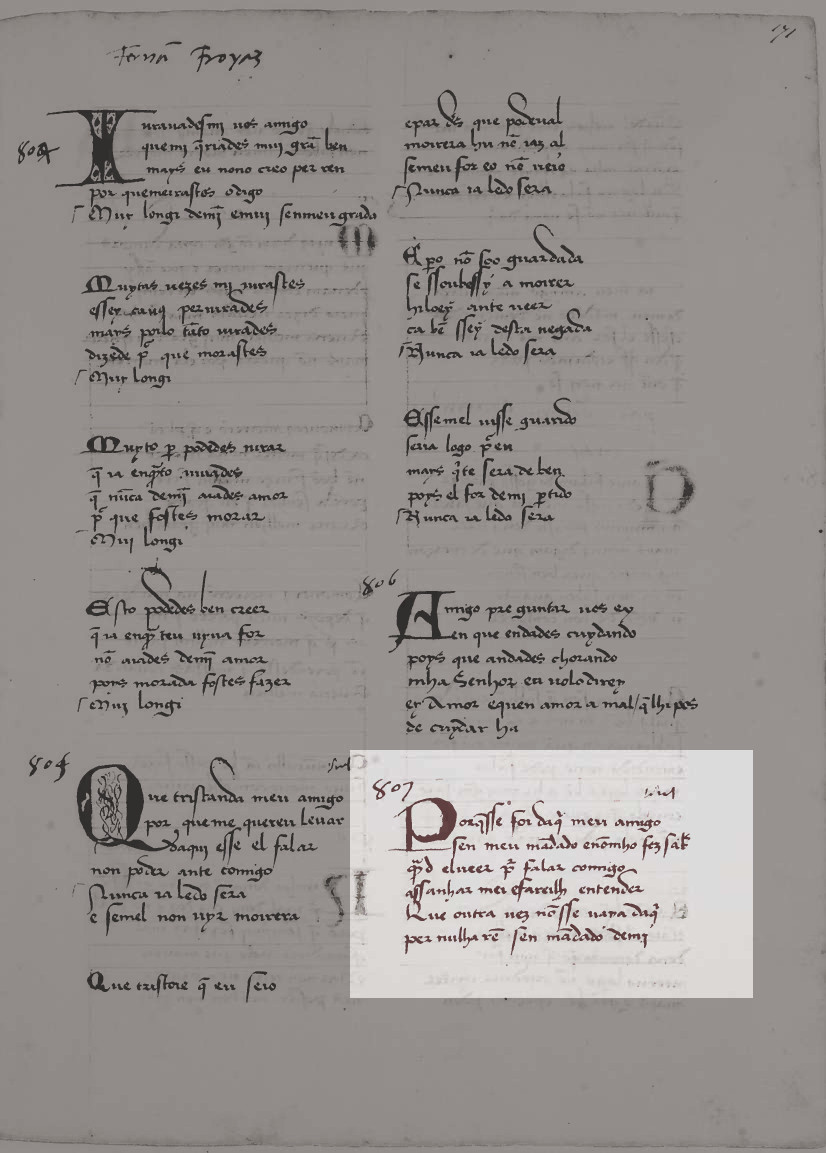 Fernã Froyaz
171
804
Iurauadesmi uos amigo
quemi q̃riades mui grã ben
mays eu nono creo per ren
por quemorastes o digo
Muy longi demĩ emui senmeu grado
Muytas uezes mi iurastes
essey ca uos periurades
mays pois tãto iurades
dizede por que morastes
Muy longi
Muyto per podedes iurar
q̃ ia enquãto uiuades
q̃ nũca demĩ aiades amor
por que fostes morar
Mui longi
Esto podedes ben creer
q̃ ia enquãteu uyua for
nõ aiades demĩ amor
poys morada fostes fazer
Mui longi
805
Que tristanda meu amigo
por que me querem leuar
daqui esse el falar
non poder ante comigo
Nunca ia ledo sera
e semel non uyr moirera
Que triste oie q̃ eu seio
epar d's que podeual
moirera hu nẽ iaz al
semeu for eo nõ ueio
Nunca ia ledo sera
E pero nõ soo guardada
se ssoubessy a moirer
hiloey ante ueer
ca bẽ ssey desta negada
Nunca ia ledo sera
Essemel uisse guarido
seria logo por en
mays quite sera de ben
poys el for demi partido
Nunca ia ledo sera
806
Amigo preguntar uos ey
en que andades cuydando
poys que andades chorando
mha Senhor eu uolo direy
ey Amor e quen amor a mal / q̃lhi pes
de cuydar ha
807
Porq̃sse foi daq̃ meu amigo
sen meu mãdado enõmho fez sab̃
quãd el ueer por falar comigo
assanhar mei efareilh entender
Que outra uez nõsse uaya daq̃
per nulha rẽ sen mãdado demi